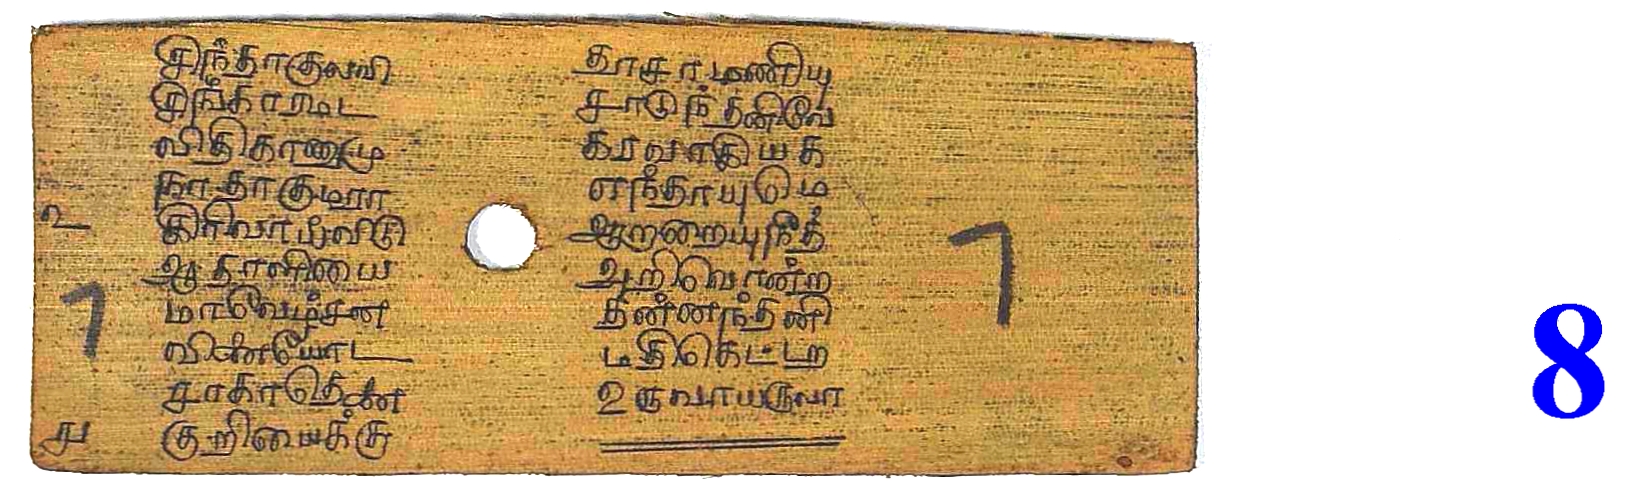 சிந்தாகுலவி
சிங்காரமட
விதிகாணுமு
நாதாகுமரா
௨ கிரிவாய்விடு
ஆதாளியை
7 மாவேழ்சன
வினையோட
சாகாதெனை
குறியைக்கு
தூசாமணியு
சாடுந்தனிவே
கரவாகியக
எந்தாயுமெ
ஆறறையுநீத்
அறிவொன்ற
தன்னந்தனி
மதிகெட்டற
உருவாயருவா
7
8